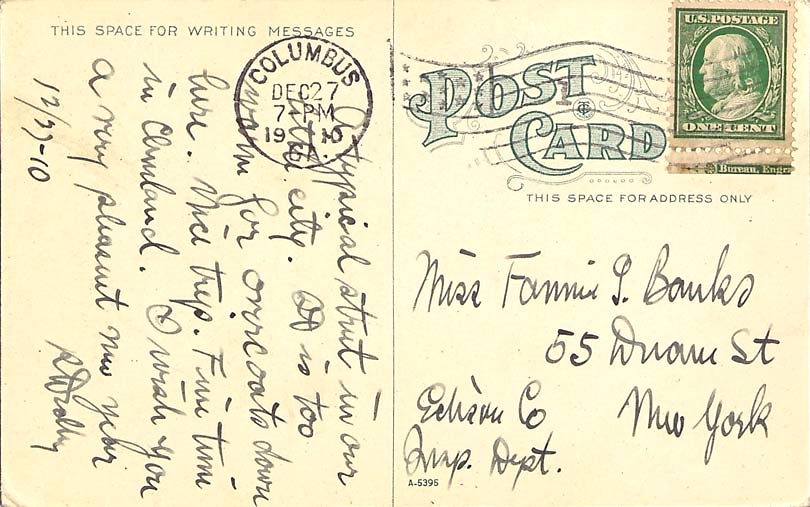 THIS SPACE FOR WRITING MESSAGES
A typical street in our
city. It is too
warm for overcoats down
here. Nice trip. Fine time
in Cleveland. I wish you
a very pleasant New Year
12/27-10
COLUMBUS
DEC 27
7-PM
1910
GA.
POST
CARD
U.S. POSTAGE
ONE CENT
Bureau, Engr
THIS SPACE FOR ADDRESS ONLY
Miss Fannie I. Banks
55 Duane St
Edison Co New York
Insp. Dept.
A-5395